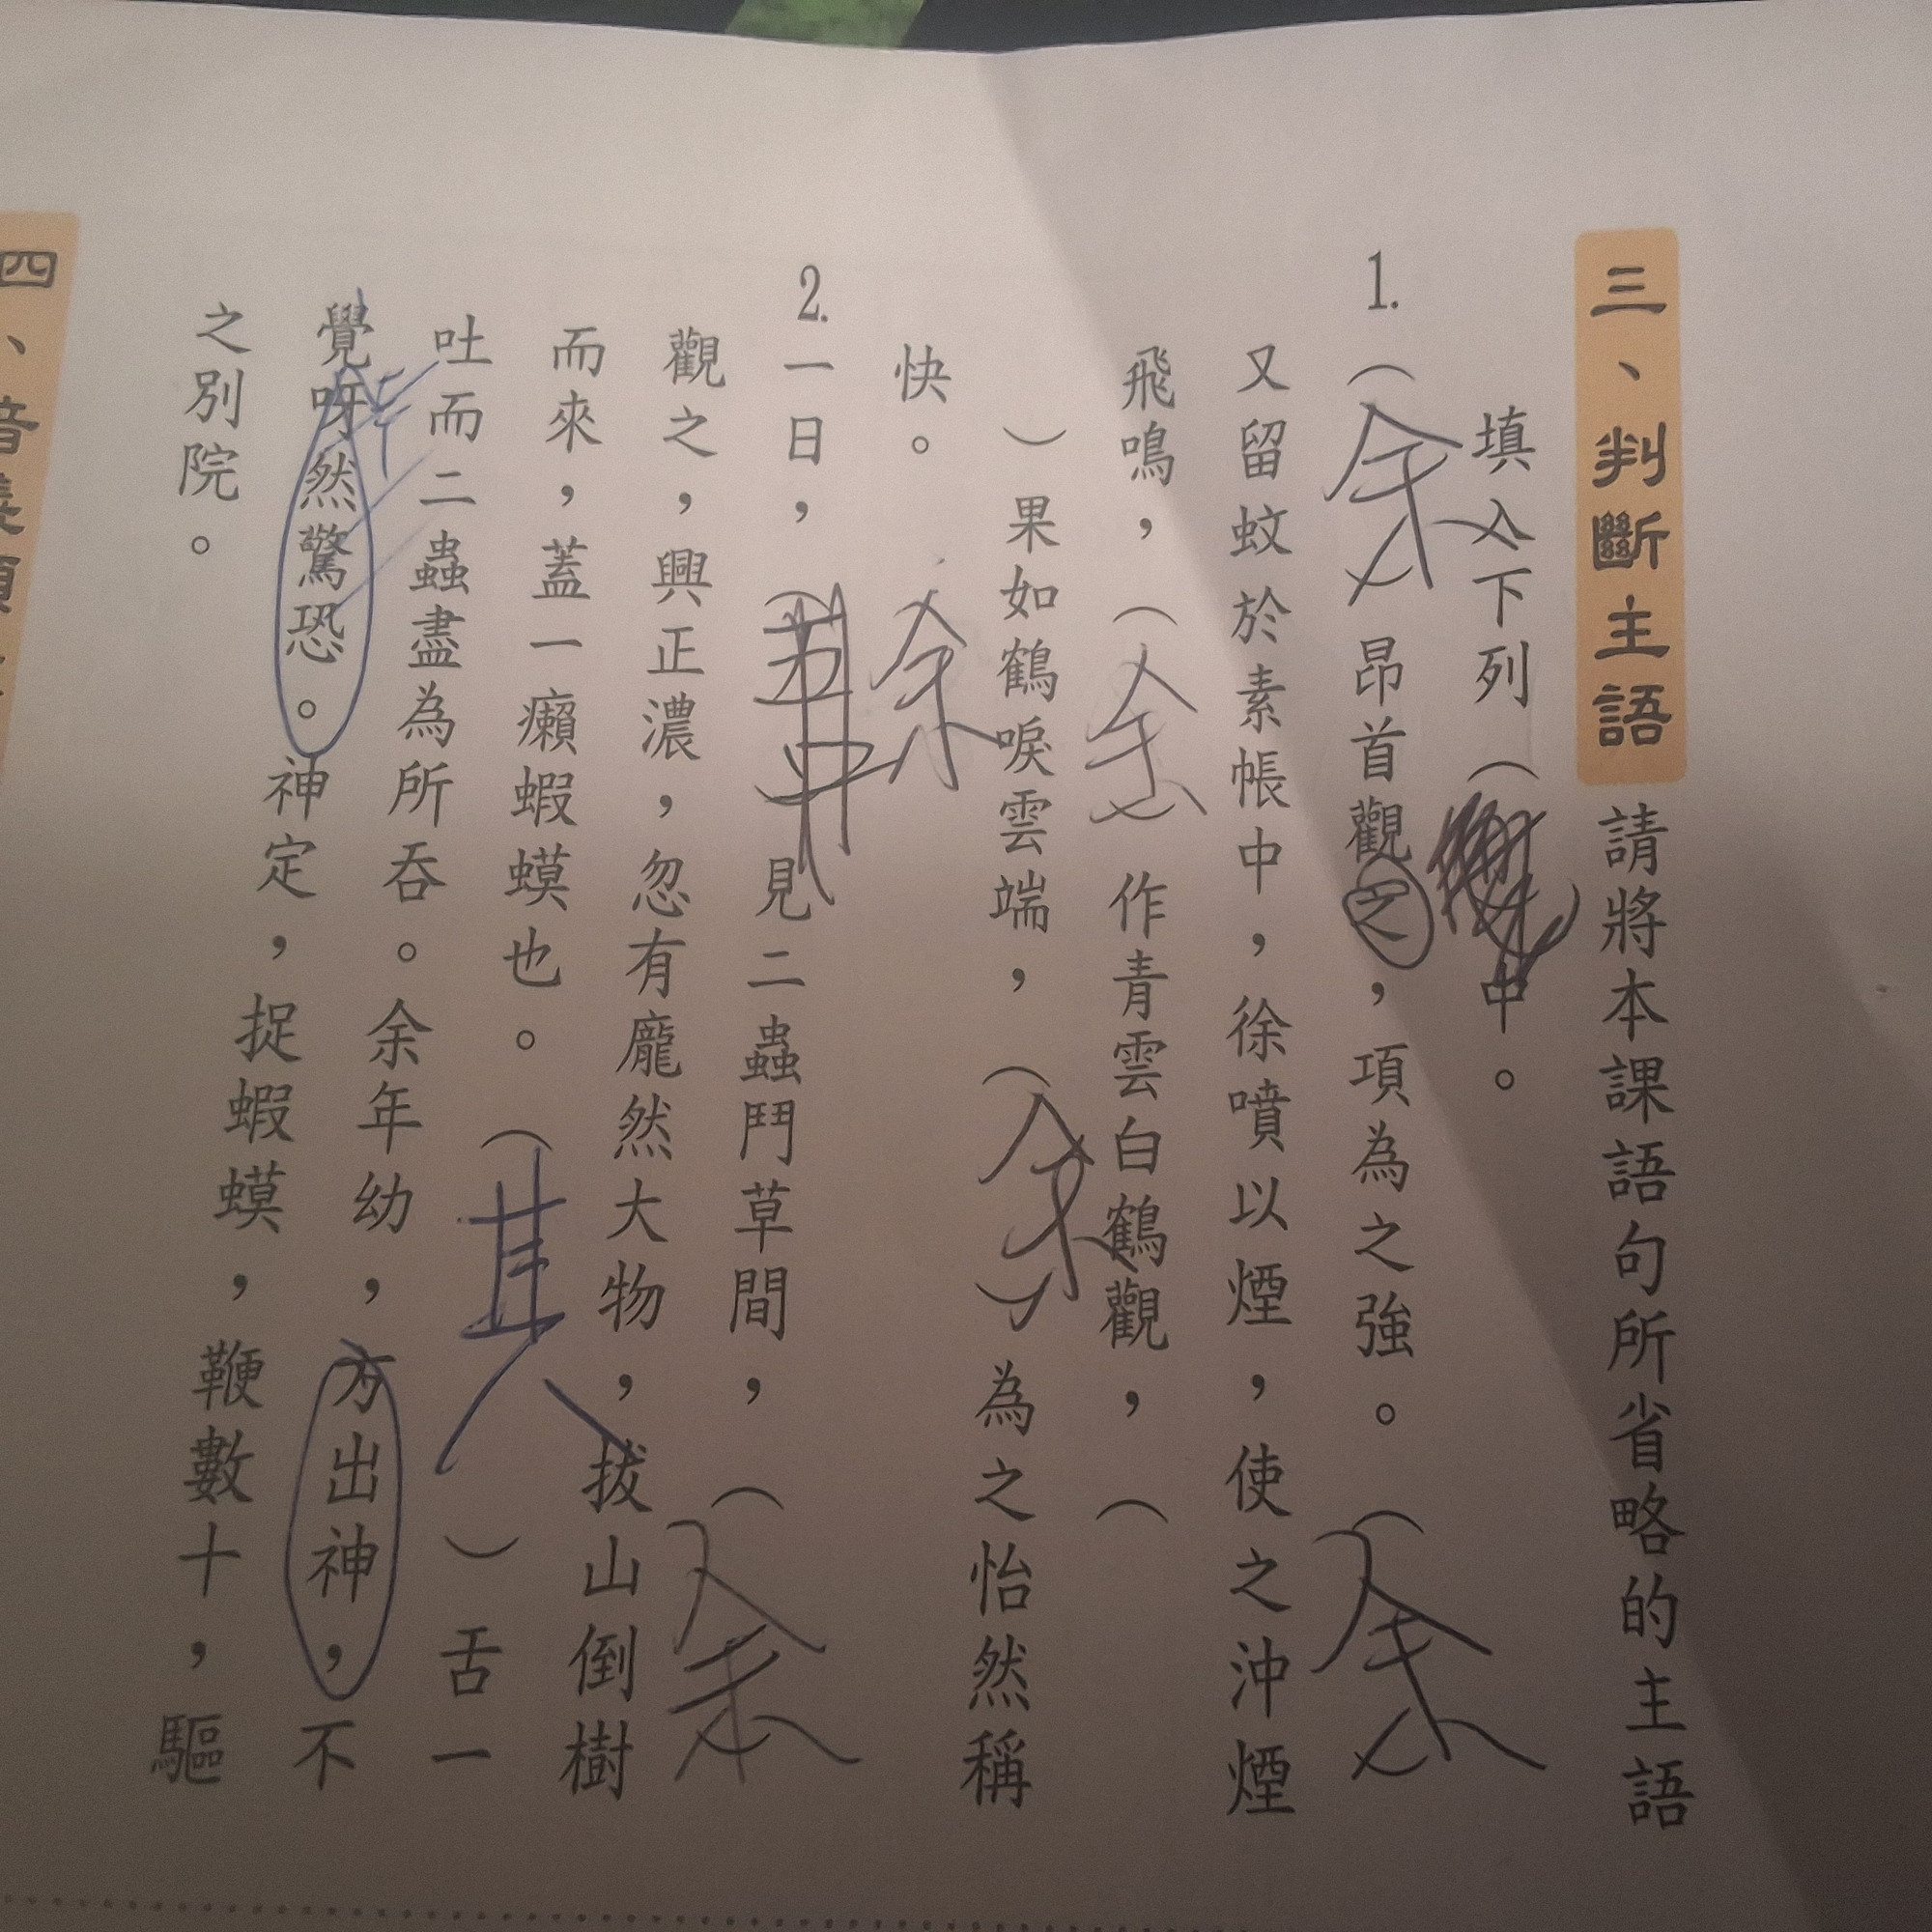 三、判斷主語 請將本課語句所省略的主語
填入下列（ ）中。
1.（余）昂首觀之，項為之強。（余
又留蚊於素帳中，徐噴以煙，使之沖煙
飛鳴，（余 作青雲白鶴觀，（
）果如鶴唳雲端，（余）為之怡然稱
快。 余
2.一日，（ 見二蟲鬥草間，（余
觀之，興正濃，忽有龐然大物，拔山倒樹
而來，蓋一癩蝦蟆也。（其）舌一
吐而二蟲盡為所吞。余年幼，方出神，不
覺呀然驚恐。神定，捉蝦蟆，鞭數十，驅
之別院。
四、音義